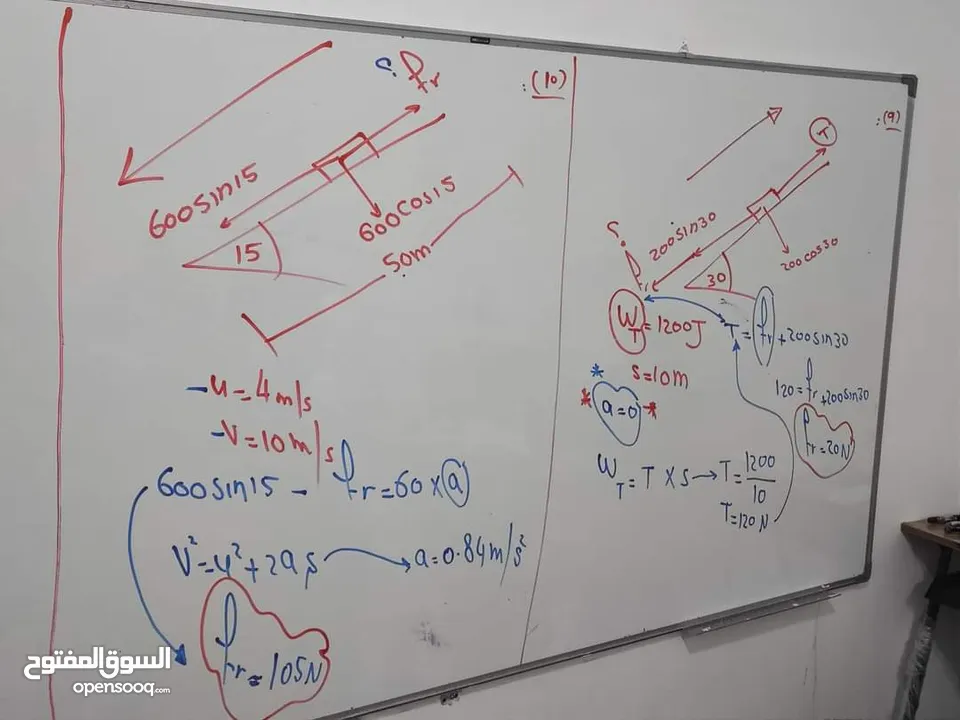 : (10)
؟. fr
600sin15
600cos15
15
50m
- u = 4 m/s
- v = 10 m/s
600sin15 - fr = 60 × a
v² = u² + 2as → a = 0.84 m/s²
fr = 105N
: (9)
T
200sin30
200cos30
30
؟.
fr
W_T = 1200J
T = fr + 200sin30
s = 10m
120 = fr + 200sin30
* a = 0 *
*
fr = 20N
W_T = T × s → T = 1200/10
T = 120N
السوق المفتوح
opensooq.com